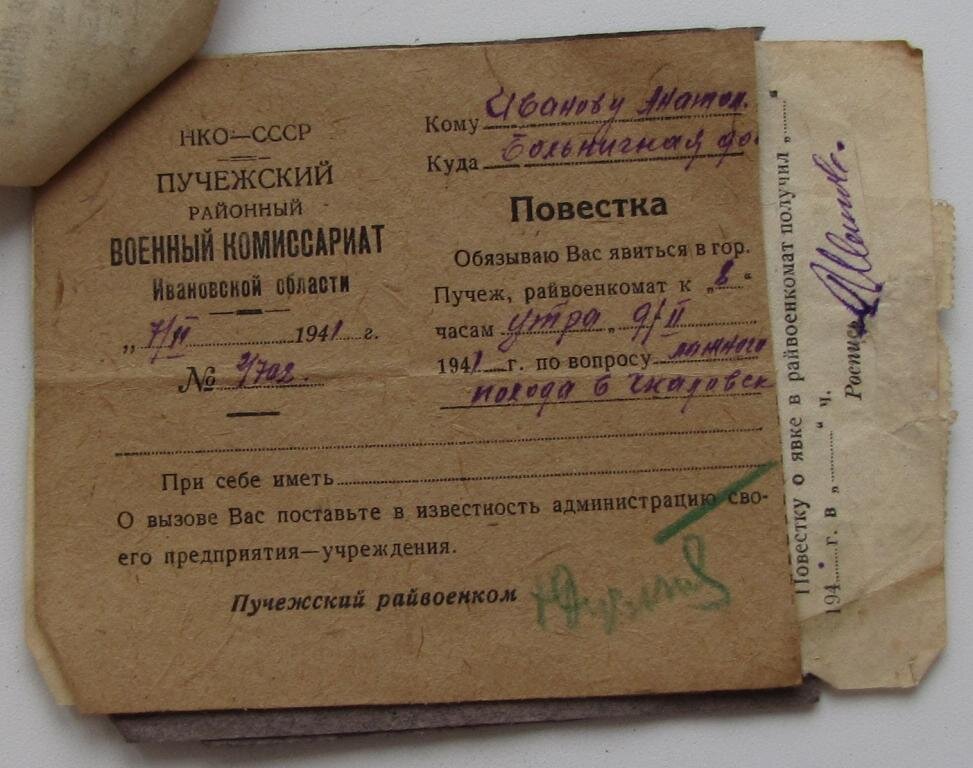 НКО—СССР
ПУЧЕЖСКИЙ
РАЙОННЫЙ
ВОЕННЫЙ КОМИССАРИАТ
Ивановской области
„ 7/II 1941 г.
№ 2/702.
Кому Иванову Анатол.
Куда Больничная
Повестка
Обязываю Вас явиться в гор.
Пучеж, райвоенкомат к „8“
часам утра „ 9/II
1941 г. по вопросу лыжного
похода в Чкаловск
При себе иметь
О вызове Вас поставьте в известность администрацию сво-
его предприятия—учреждения.
Пучежский райвоенком
Повестку о явке в райвоенкомат получил „ “
194 г. в „ “ ч.
Роспись